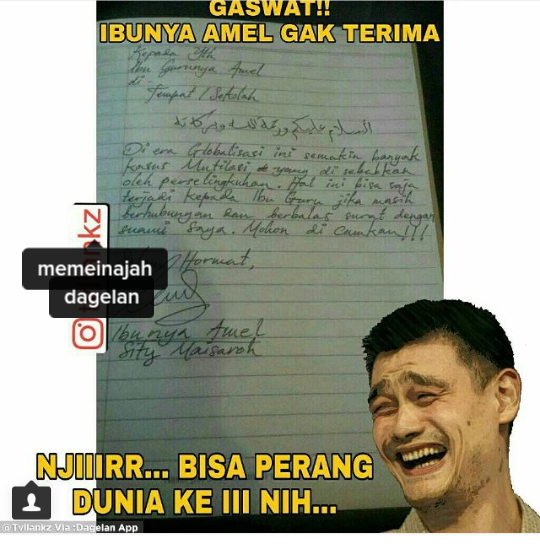 GASWAT!!
IBUNYA AMEL GAK TERIMA
Kepada Yth
Ibu Gurunya Amel
di -
Tempat / Sekolah
السلام عليكم ورحمة الله وبركاته
Di era Globalisasi ini semakin banyak
kasus Mutilasi yang di sebabkan
oleh perselingkuhan. Hal ini bisa saja
terjadi kepada Ibu Guru jika masih
berhubungan dan berbalas surat dengan
suami saya. Mohon di camkan!!!
Hormat,
Ibunya Amel
Sity Maisaroh
memeinajah
dagelan
NJIIIRR... BISA PERANG
DUNIA KE III NIH...
@Tvllankz Via :Dagelan App